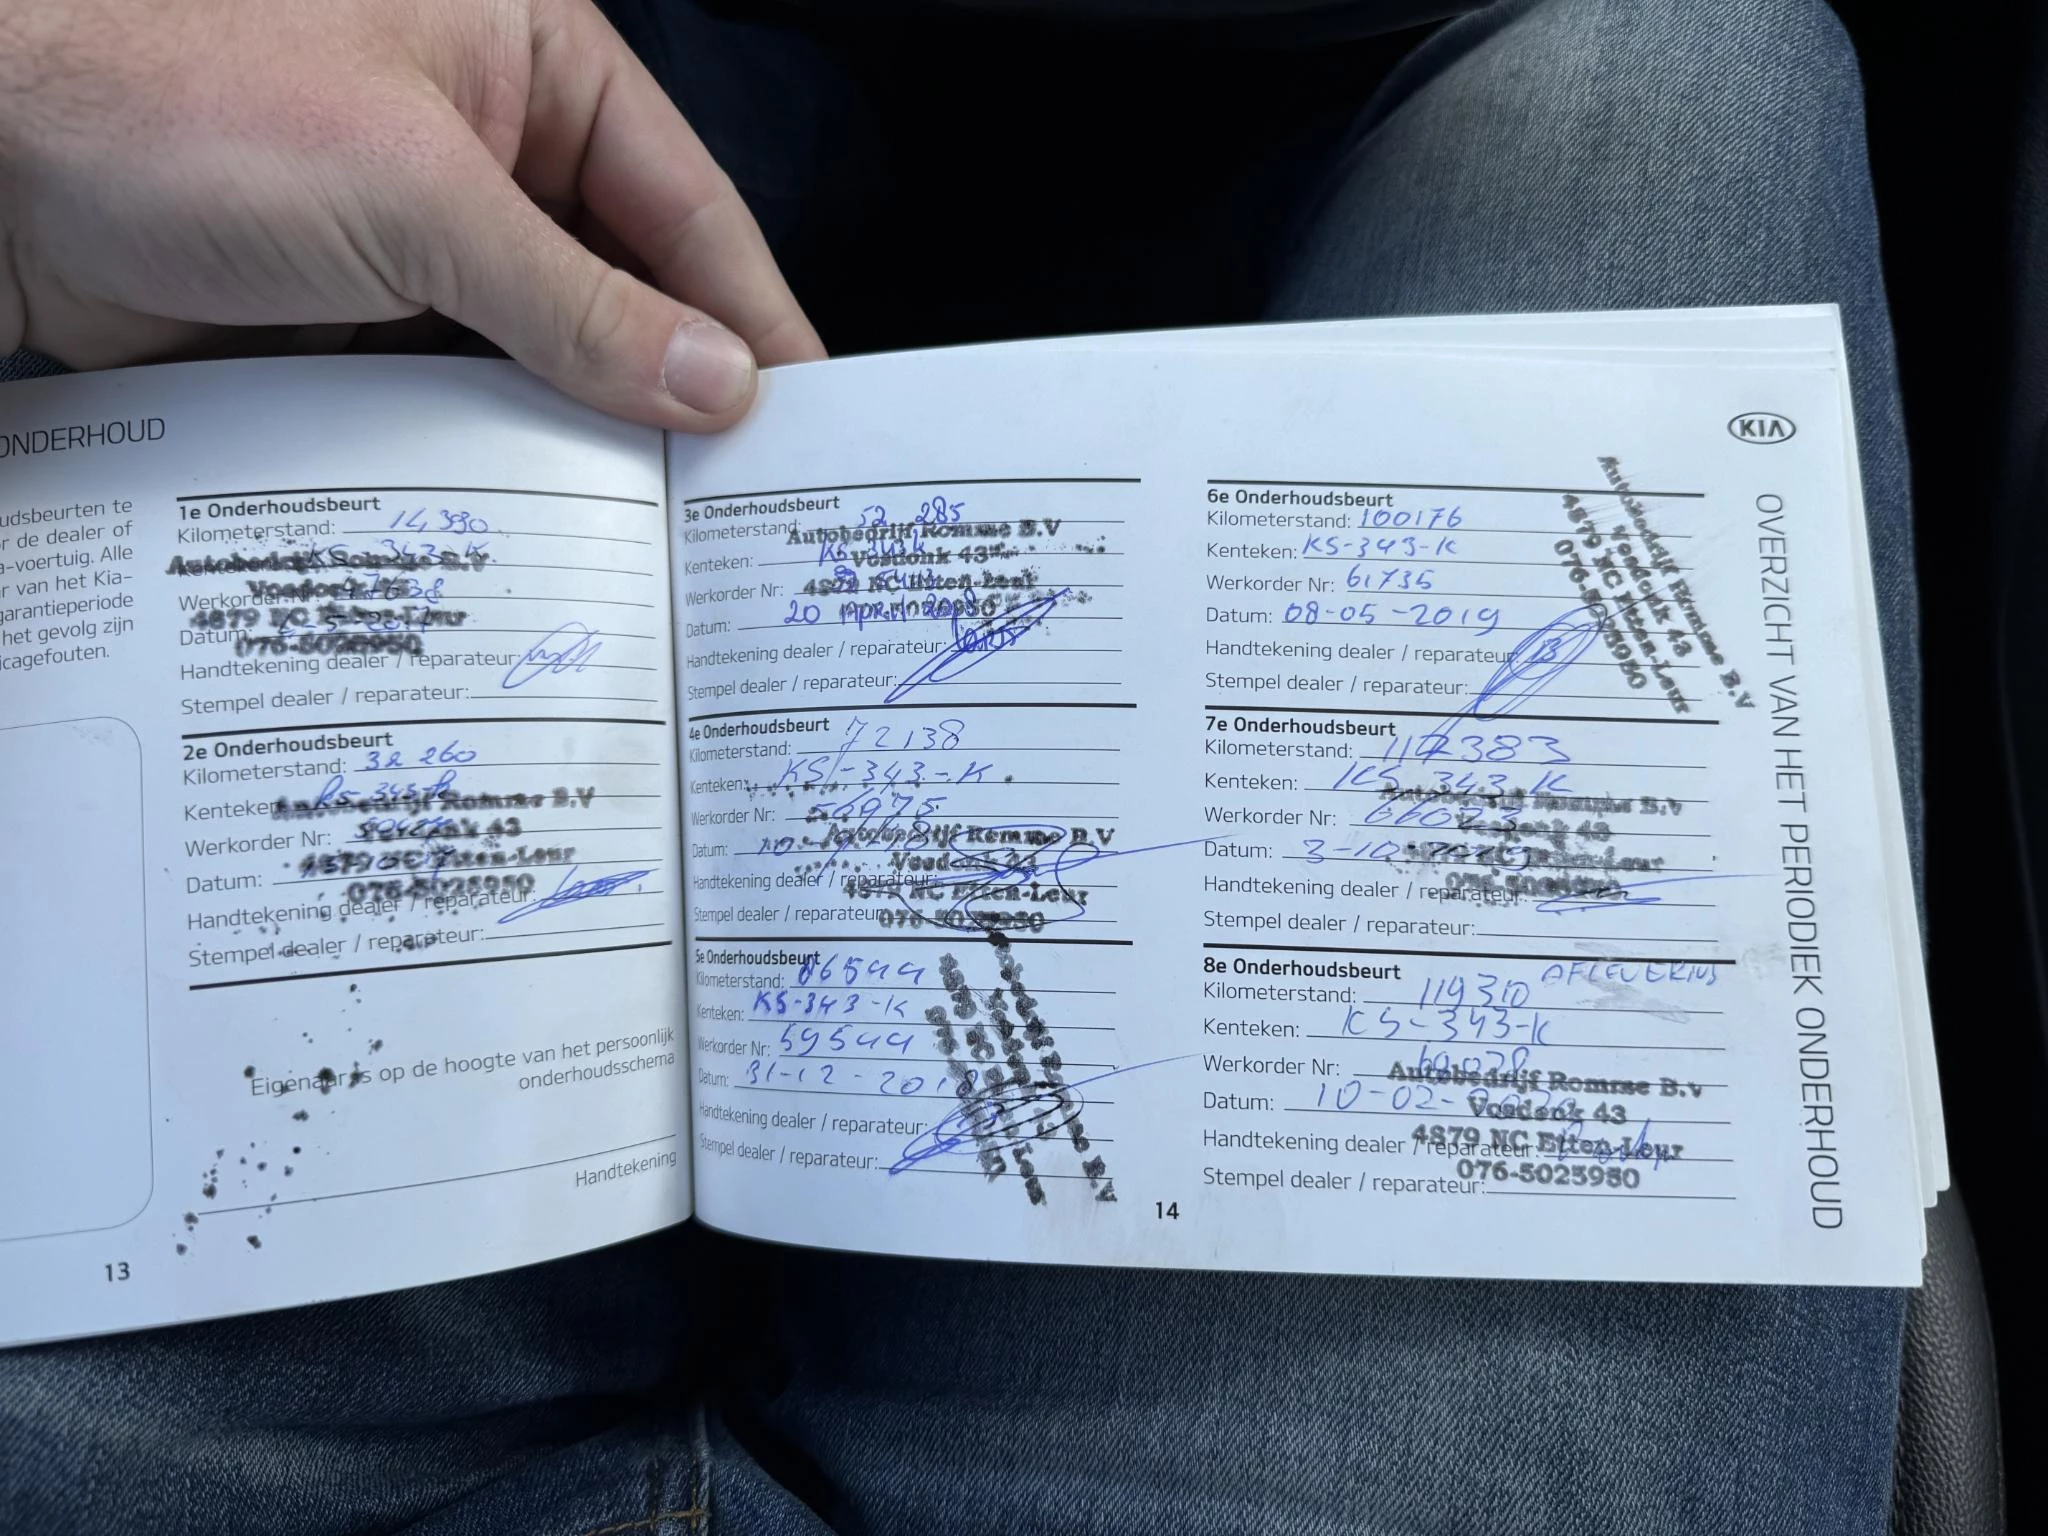 ONDERHOUD
udsbeurten te
r de dealer of
a-voertuig. Alle
r van het Kia-
garantieperiode
het gevolg zijn
icagefouten.
1e Onderhoudsbeurt
Kilometerstand: 14390
KS 343-K
Autobedrijf Romme B.V
Werkorder Nr:
4879 NC Etten-Leur
Datum:
076-5025950
Handtekening dealer / reparateur:
Stempel dealer / reparateur:
2e Onderhoudsbeurt
Kilometerstand: 32 260
Kenteken:
Autobedrijf Romme B.V
Werkorder Nr:
4879 NC Etten-Leur
Datum:
076-5025950
Handtekening dealer / reparateur:
Stempel dealer / reparateur:
Eigenaar is op de hoogte van het persoonlijk
onderhoudsschema
Handtekening
13
3e Onderhoudsbeurt
Kilometerstand: 52 285
Autobedrijf Romme B.V
Kenteken: KS 343K
Vosdonk 43
Werkorder Nr:
4879 NC Etten-Leur
Datum: 20 April
Handtekening dealer / reparateur:
Stempel dealer / reparateur:
4e Onderhoudsbeurt
Kilometerstand: 72138
Kenteken: KS-343-K
Werkorder Nr: 56975
Autobedrijf Romme B.V
Datum:
Vosdonk 43
Handtekening dealer / reparateur:
4879 NC Etten-Leur
Stempel dealer / reparateur:
076-5025950
5e Onderhoudsbeurt
Kilometerstand: 86544
Kenteken: KS-343-K
Werkorder Nr: 59544
Datum: 31-12-2018
Handtekening dealer / reparateur:
Stempel dealer / reparateur:
14
KIA
6e Onderhoudsbeurt
Kilometerstand: 100176
Kenteken: KS-343-K
Werkorder Nr: 61735
Datum: 08-05-2019
Handtekening dealer / reparateur:
Stempel dealer / reparateur:
Autobedrijf Romme B.V
Vosdonk 43
4879 NC Etten-Leur
076-5025950
7e Onderhoudsbeurt
Kilometerstand: 117383
Kenteken: KS-343-K
Autobedrijf Romme B.V
Werkorder Nr: 66073
Vosdonk 43
Datum: 3-10-2019
Handtekening dealer / reparateur:
Stempel dealer / reparateur:
8e Onderhoudsbeurt AFLEVERING
Kilometerstand: 119310
Kenteken: KS-343-K
Werkorder Nr:
Autobedrijf Romme B.V
Datum: 10-02-2020
Vosdonk 43
4879 NC Etten-Leur
Handtekening dealer / reparateur:
076-5025950
Stempel dealer / reparateur:
OVERZICHT VAN HET PERIODIEK ONDERHOUD